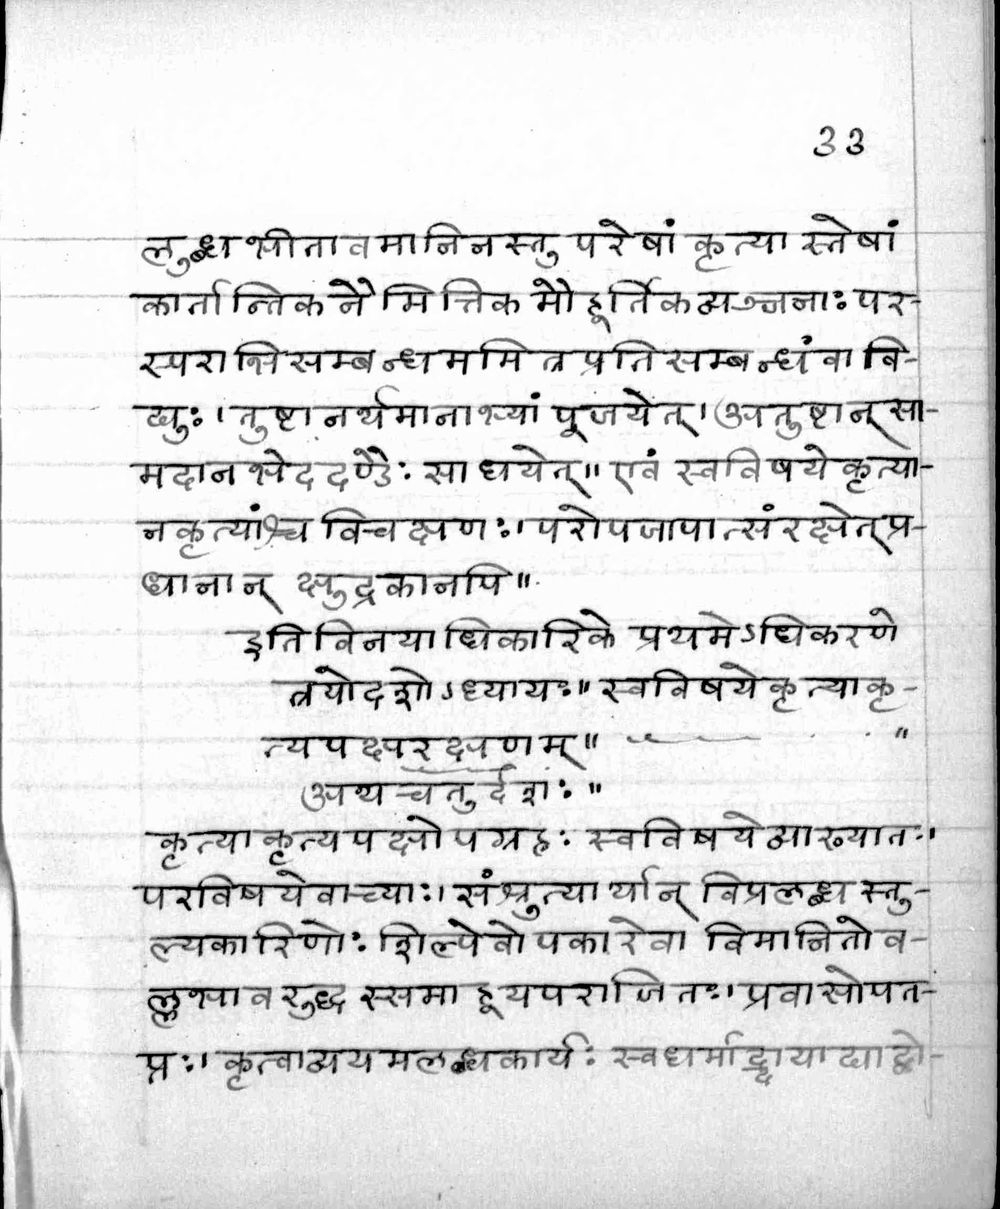 33
लुब्धभीतावमानिनस्तु परेषां कृत्या स्तेषां
कार्तान्तिकनैमित्तिकमौहूर्तिकव्यञ्जनाः पर-
स्पराभिसम्बन्धममित्रप्रतिसम्बन्धं वा वि-
द्युः। तुष्टानर्थमानाभ्यां पूजयेत्। अतुष्टान् सा-
मदानभेददण्डैः साधयेत्॥ एवं स्वविषये कृत्या-
नकृत्यांश्च विचक्षणः। परोपजापात्संरक्षेत् प्र-
धानान् क्षुद्रकानपि॥
इति विनयाधिकारिके प्रथमेऽधिकरणे
त्रयोदशोऽध्यायः॥ स्वविषयेकृत्याकृ-
त्यपक्षरक्षणम्॥ ॥
अथ चतुर्दशः॥
कृत्याकृत्यपक्षोपग्रहः स्वविषये व्याख्यातः।
परविषये वाच्याः। संश्रुत्यार्थान् विप्रलब्ध स्तु-
ल्यकारिणोः शिल्पेवोपकारेवा विमानितो व-
ल्लभावरुद्ध स्समाहूयपराजितः। प्रवासोपत-
प्तः। कृत्वाव्ययमलब्धकार्यः स्वधर्माद्दायाद्याद्वो-